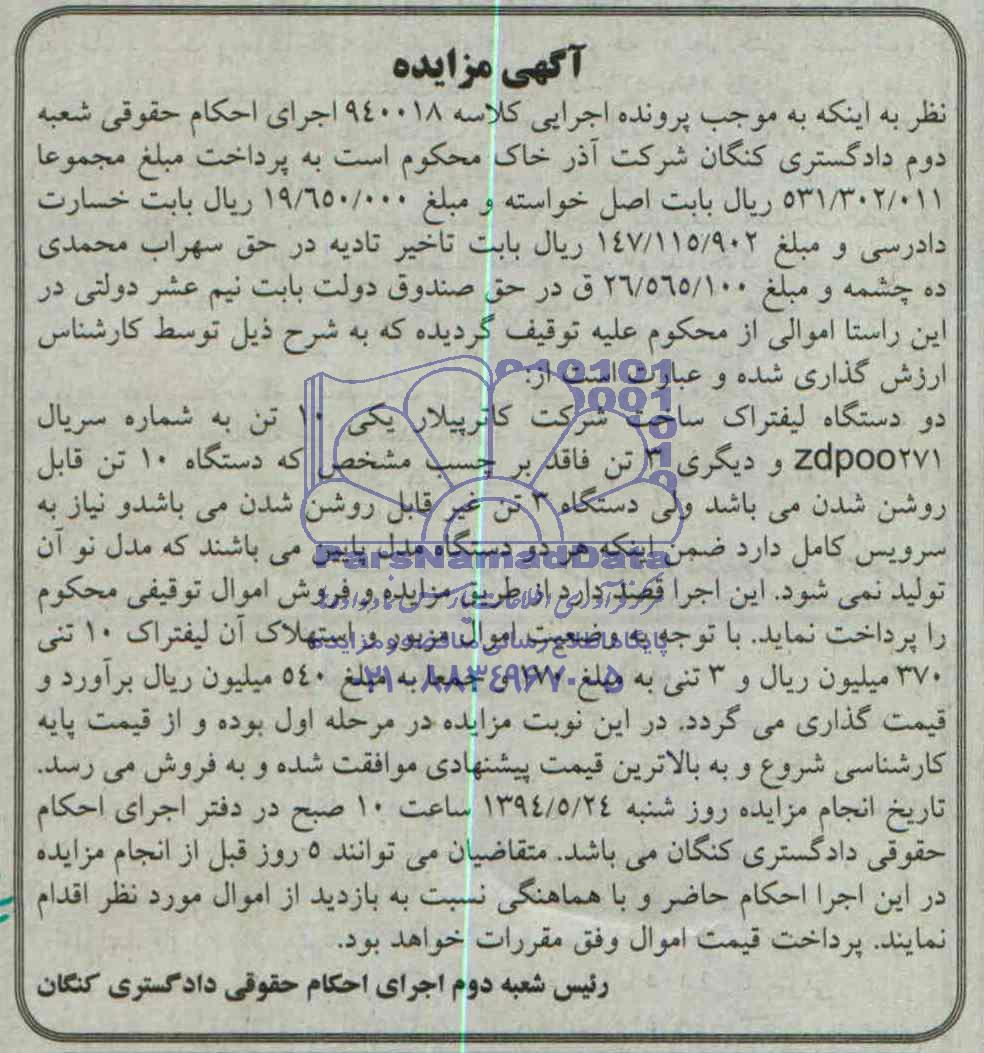 آگهی مزایده
نظر به اینکه به موجب پرونده اجرایی کلاسه ۹٤۰۰۱۸ اجرای احکام حقوقی شعبه
دوم دادگستری کنگان شرکت آذر خاک محکوم است به پرداخت مبلغ مجموعا
۵۳۱/۳۰۲/۰۱۱ ریال بابت اصل خواسته و مبلغ ۱۹/٦۵۰/۰۰۰ ریال بابت خسارت
دادرسی و مبلغ ۱٤۷/۱۱۵/۹۰۲ ریال بابت تاخیر تادیه در حق سهراب محمدی
ده چشمه و مبلغ ۲٦/۵٦۵/۱۰۰ ق در حق صندوق دولت بابت نیم عشر دولتی در
این راستا اموالی از محکوم علیه توقیف گردیده که به شرح ذیل توسط کارشناس
ارزش گذاری شده و عبارت است از:
دو دستگاه لیفتراک ساخت شرکت کاترپیلار یکی ۱۰ تن به شماره سریال
zdpoo۲۷۱ و دیگری ۳ تن فاقد بر چسب مشخص که دستگاه ۱۰ تن قابل
روشن شدن می باشد ولی دستگاه ۳ تن غیر قابل روشن شدن می باشدو نیاز به
سرویس کامل دارد ضمن اینکه هر دو دستگاه مدل پایین می باشند که مدل نو آن
تولید نمی شود. این اجرا قصد دارد از طریق مزایده و فروش اموال توقیفی محکوم
را پرداخت نماید. با توجه به وضعیت اموال مزبور و استهلاک آن لیفتراک ۱۰ تنی
۳۷۰ میلیون ریال و ۳ تنی به مبلغ ۱۷۰ و جمعا به مبلغ ۵٤۰ میلیون ریال برآورد و
قیمت گذاری می گردد. در این نوبت مزایده در مرحله اول بوده و از قیمت پایه
کارشناسی شروع و به بالاترین قیمت پیشنهادی موافقت شده و به فروش می رسد.
تاریخ انجام مزایده روز شنبه ۱۳۹٤/۵/۲٤ ساعت ۱۰ صبح در دفتر اجرای احکام
حقوقی دادگستری کنگان می باشد. متقاضیان می توانند ۵ روز قبل از انجام مزایده
در این اجرا احکام حاضر و با هماهنگی نسبت به بازدید از اموال مورد نظر اقدام
نمایند. پرداخت قیمت اموال وفق مقررات خواهد بود.
رئیس شعبه دوم اجرای احکام حقوقی دادگستری کنگان
ParsNamadData
پایگاه اطلاع رسانی مناقصه و مزایده
۰۲۱-۸۸۳٤۹٦۷۰-۵